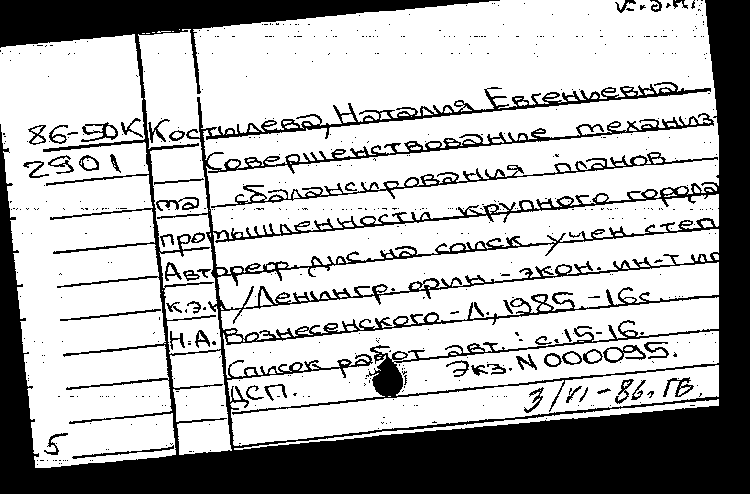 86-50К Костылева, Наталия Евгениевна.
2901 Совершенствование механиз-
ма сбалансирования планов
промышленности крупного города
Автореф. дис. на соиск. учен. степ
к.э.н. / Ленингр. фин.-экон. ин-т им
Н.А. Вознесенского.-Л., 1985.-16с.
Список работ авт.: с.15-16.
ДСП. Экз. N 000095.
3/VI-86. ГВ.
5